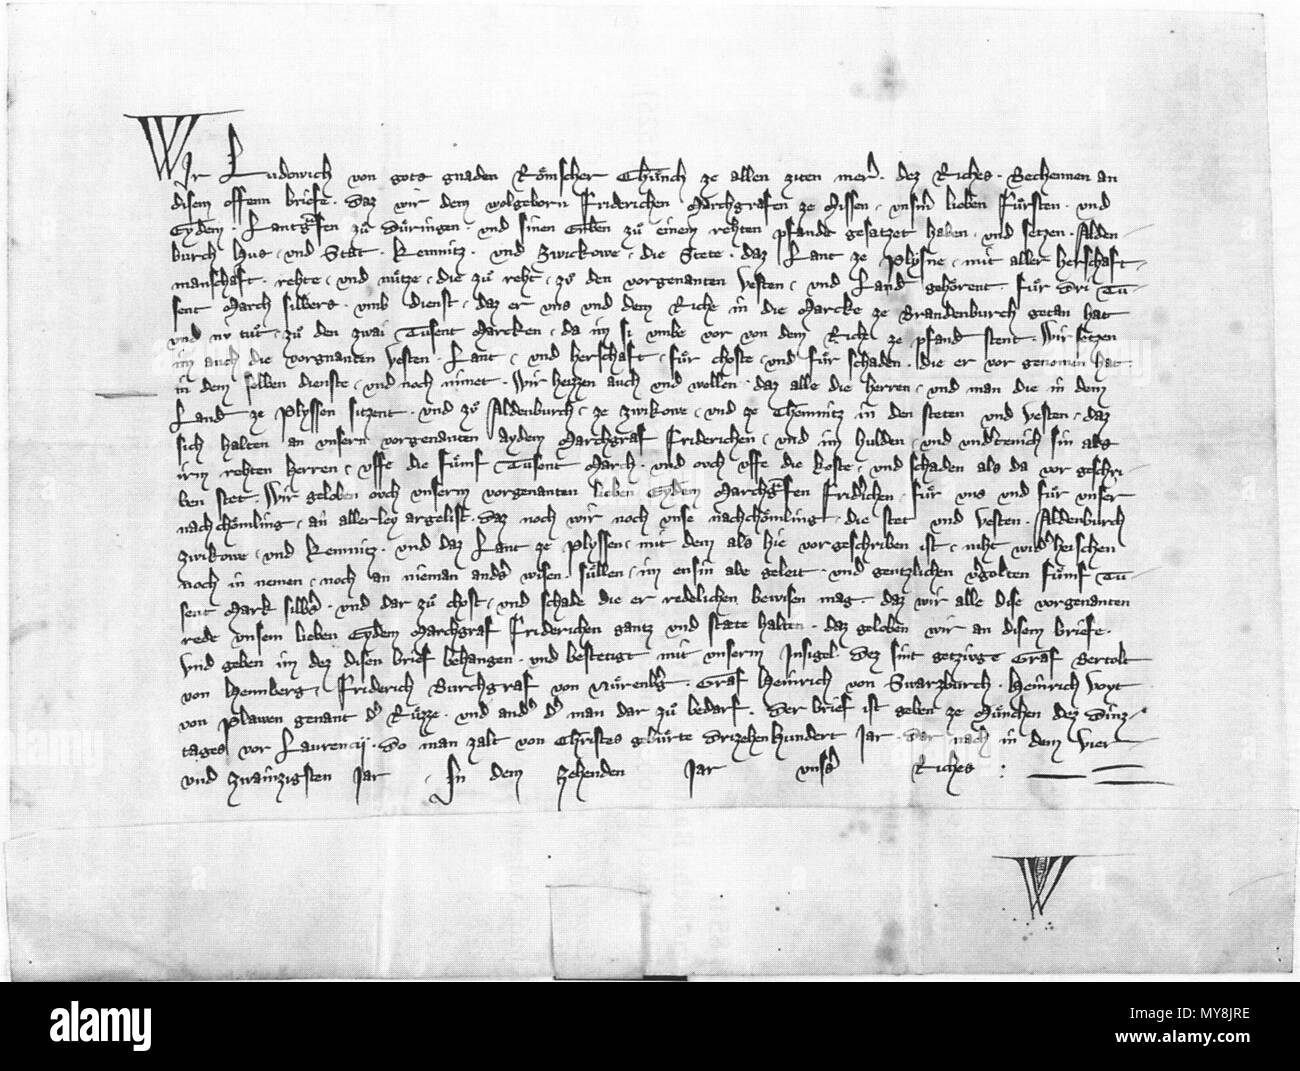 Wir Ludowich von gots gnaden Römscher Chünch ze allen ziten merer · dez Riches · Bechennen an
disem offenn briefe · daz wir dem wolgeborn Friderichen Marchgrafen ze Missen · unserm lieben Fürsten · und
Eydem · Lantgrafen zu Düringen · und sinen Erben zu einem rehten pfande gesatzet haben · und setzen · Alden-
burch Hus · und Stat · Kemnitz · und Zwickowe · die Stete · daz Lant ze Plysne · mit aller herschaft ·
manschaft · rehte · und nütze · die zu reht · zu den vorgenanten Vesten · und Land gehörent · für dri Tu-
sent March silbers · umb dienst · daz er uns und dem Riche in die Marcke ze Brandenburch getan hat
und nv tut · zu den zwai Tusent Marcken · da im si umbe vor von dem Riche ze pfand stent · Wir setzen
im auch die vorgnanten Vesten · Lant · und herschaft · für choste · und für schaden · die er vor genomen hat ·
in dem selben dienste · und noch nimet · Wir heizzen auch und wellen · daz alle die herren · und man die in dem
Land ze Plyssen sitzent · und zu Aldenburch · ze Zwikowe · und ze Chemnitz in den steten und Vesten · daz
sich halten an unsern vorgenanten aydem Marchgraf Friderichen · und im hulden · und undertenich sin als
irm rehten herren · uffe die fümf Tusent March · und ouch uffe die koste · und schaden als da vor geschri-
ben stet · Wir geloben ouch unserm vorgenanten lieben Eydem Marchgrafen Friderichen · für uns und für unser
nachchömling · an allerley argelist · daz noch wir noch unse nachchömling · die stet und Vesten · Aldenburch
Zwikowe · und Kemnitz · und daz Lant ze Plyssen · mit dem als hie vorgeschriben ist · niht wider heischen
noch in nemen · noch an nieman anders wisen · süllen · im ensin abe geleit · und gentzlichen vergolten fümf Tu-
sent Mark silbers · und dar zu chost · und schade die er redelichen bewisen mag · daz wir alle dise vorgenanten
rede unserm lieben Eydem Marchgraf Friderichen gantz und state halten · daz geloben wir an disem briefe ·
Und geben im dez disen brief behangen · und bestetigt mit unserm Insigel · Dez sint getzivge Graf Bertolt
von Hennberg · Friderich Burchgraf von Nürenberg · Graf Heinrich von Swarzburch · Heinrich Voyt
von Plawen genant der Rüzze · und ander der man dar zu bedarf · Der brief ist geben ze München dez Dinz-
tages vor Laurencij · Do man zalt von Christes gebürte drizehenhundert Jar · dar nach in dem Vier-
und zwainzigsten Jar · In dem Zehenden Jar unsers Riches :
W
alamy
Image ID: MY8JRE
www.alamy.com